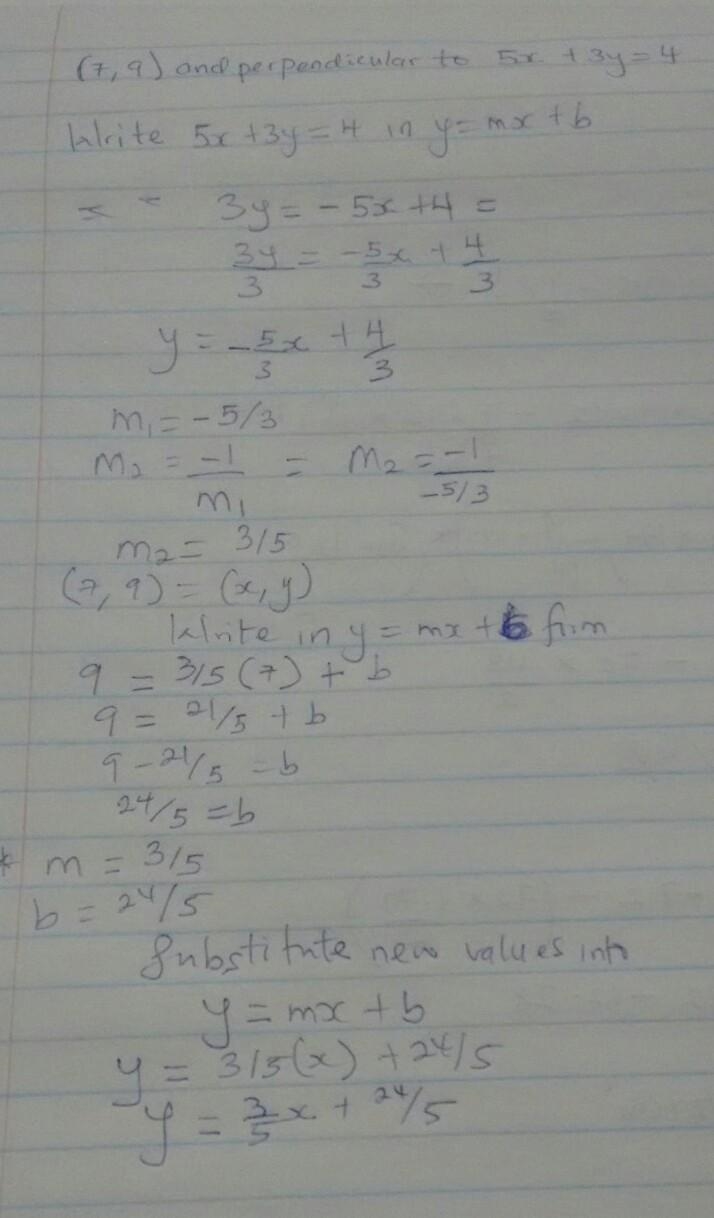 (7, 9) and perpendicular to 5x + 3y = 4
Write 5x + 3y = 4 in y = mx + b
3y = -5x + 4 =
3y/3 = -5x/3 + 4/3
y = -5x/3 + 4/3
m₁ = -5/3
m₂ = -1/m₁ = m₂ = -1/-5/3
m₂ = 3/5
(7, 9) = (x, y)
Write in y = mx + b form
9 = 3/5 (7) + b
9 = 21/5 + b
9 - 21/5 = b
24/5 = b
* m = 3/5
b = 24/5
Substitute new values into
y = mx + b
y = 3/5(x) + 24/5
y = 3/5 x + 24/5